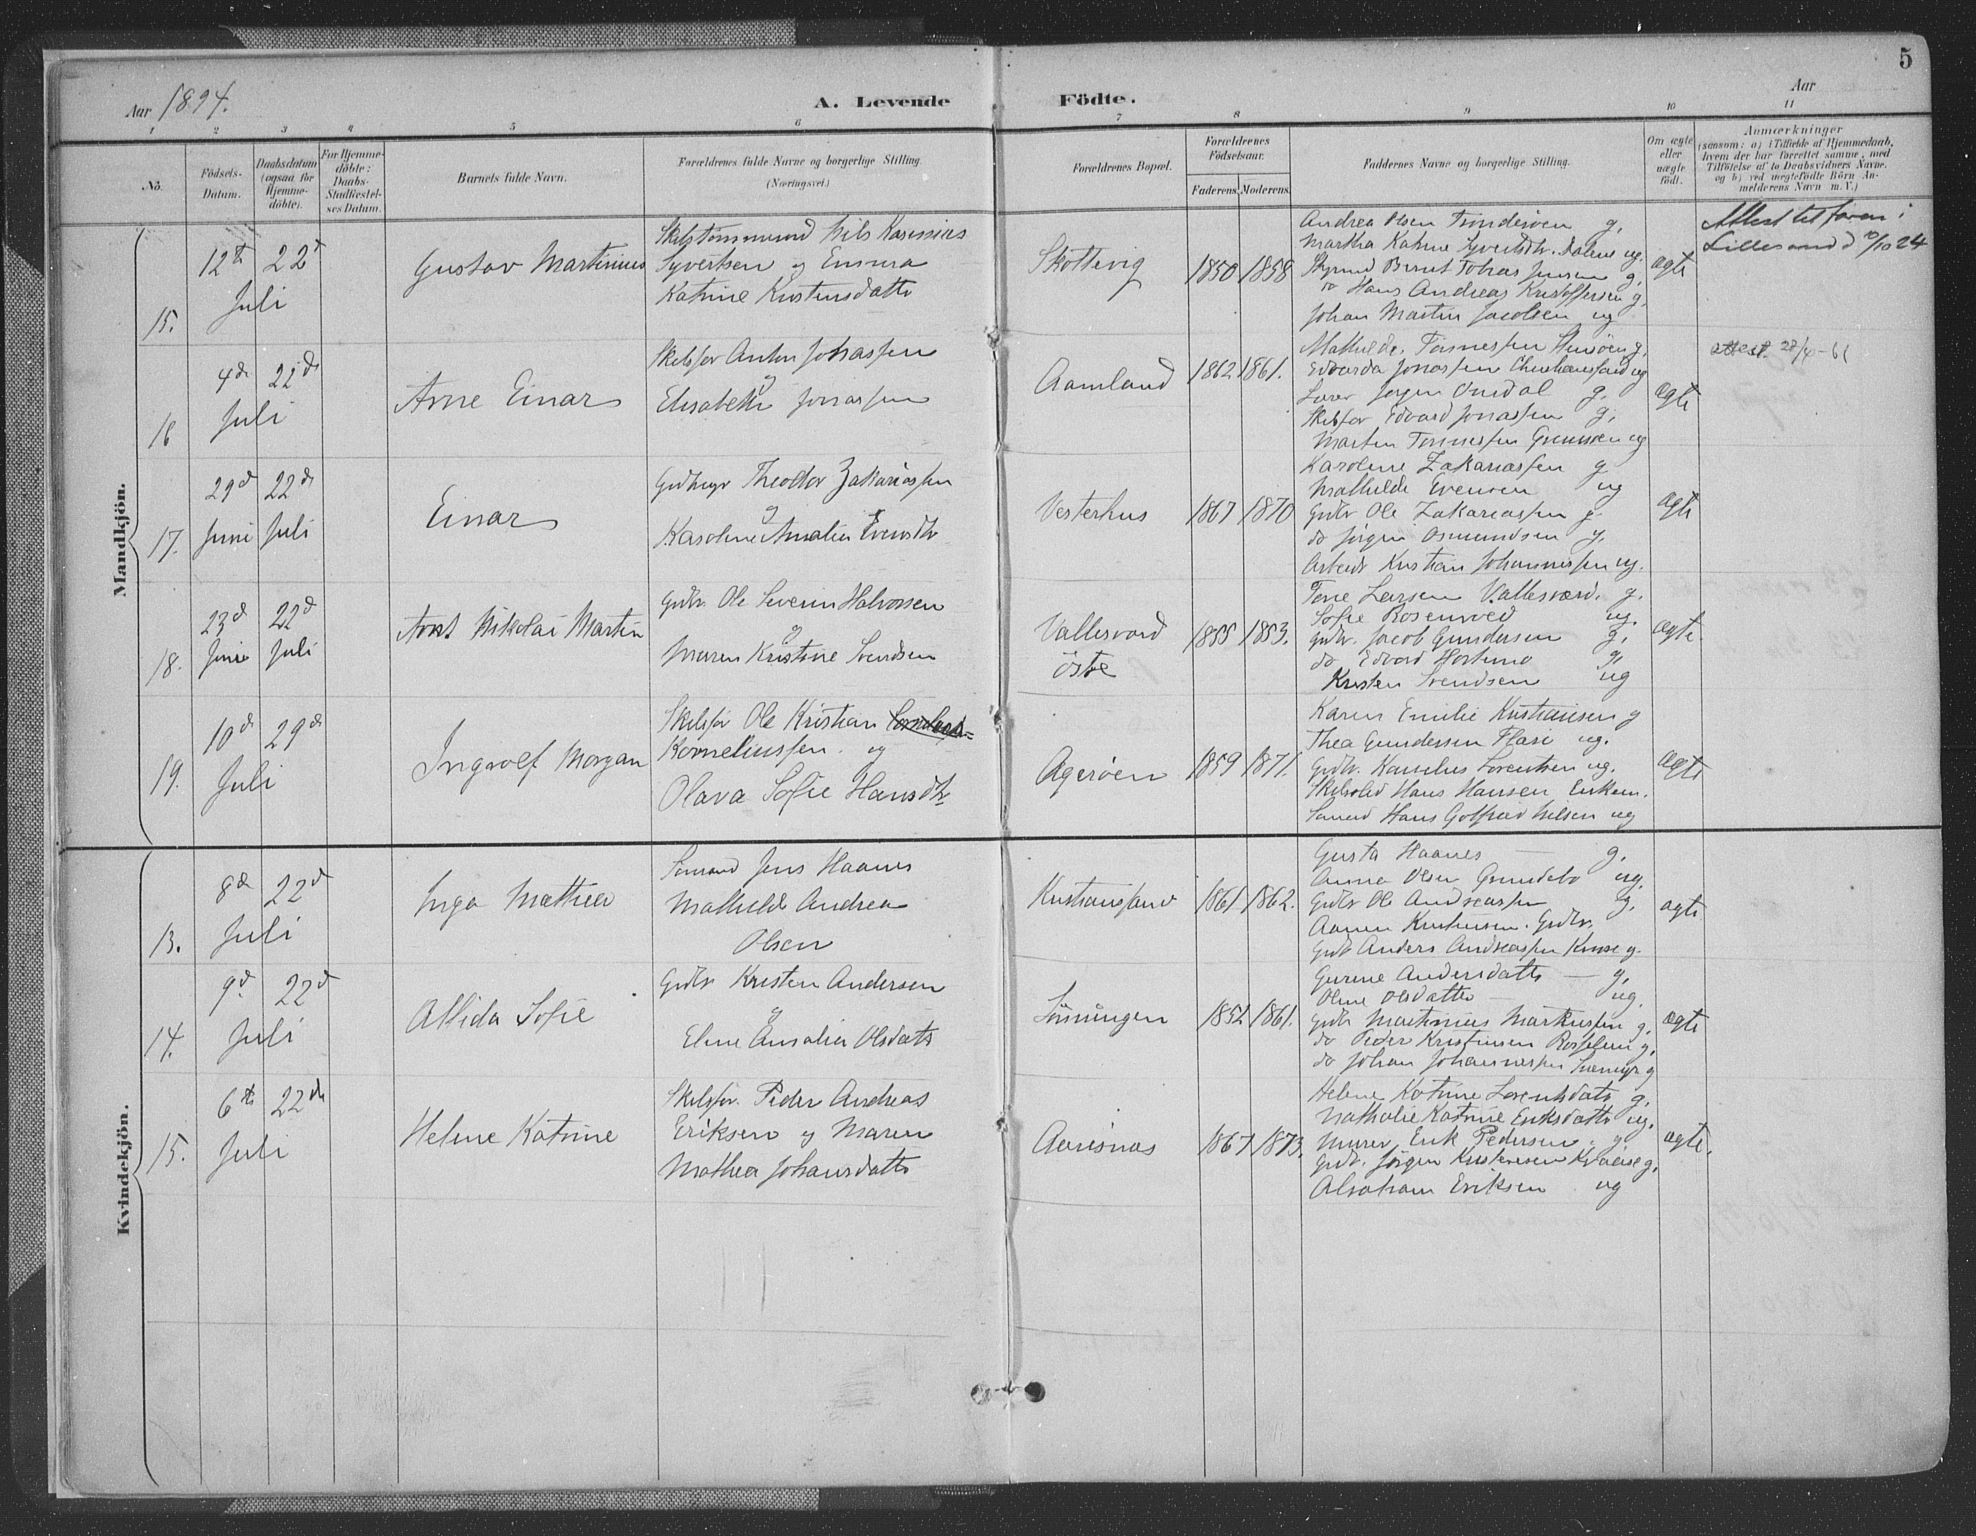 5
Aar 1894.
A. Levende
Födte.
Aar
1 2 3 4 5 6 7 8 9 10 11
No.
Födsels-
Datum.
Daabsdatum
(ogsaa for
Hjemme-
döbte).
For Hjemme-
döbte:
Daabs-
Stadfæstel-
ses Datum.
Barnets fulde Navn.
Forældrenes fulde Navne og borgerlige Stilling.
(Næringsvei.)
Forældrenes Bopæl.
Forældrenes
Födselsaar.
Faderens.
Moderens.
Faddernes Navne og borgerlige Stilling.
Om ægte
eller
uægte
födt.
Anmærkninger
(saasom: a) i Tilfælde af Hjemmedaab,
hvem der har forrettet samme, med
Tilföielse af to Daabsvidners Navne.
og b) ved uægtefödte Börn An-
melderens Navn m. V.)
Mandkjön.
15.
12te
Juli
22d
Gustav Martinius
Skibstømmermd Nils Karinius
Syvertsen og Emma
Katrine Kristensdatte
Skottevig
1850
1858
Andrea Olsen g,
Martha Katrine Syvertsdtr. ug.
Bernt Tobias Jensen g,
do Hans Andreas Kristoffersen g,
Johan Martin Jacobsen ug
ægte
Attest til faren i
Lillesand 10/10 24
16
4de
Juli
22de
Arne Einar
Skibsfør Anton Jonassen
og
Elisabeth Jonassen
Aamland
1862
1861.
Mathilde Tønnessen g,
Edvarda Jonassen Christianssand ug
Lærer Jørgen Omdal g,
Skibsfør Edvard Jonassen g,
Morten Tønnessen ug
ægte
attest. 27/4-61
17.
29d
Juni
22de
Juli
Einar
Theodor Zakariassen
og
Karoline Amalia Evensdtr
Vesterhus
1867
1870
Karoline Zakariassen g
Mathilde Evensen ug
Grdbr Ole Zakariassen g.
do Jørgen Osmundsen g,
Arbeidr Kristian Johannessen ug.
ægte
18.
23d
Juni
22d
Juli
Arnt Nikolai Martin
Grdbr. Ole Severin Halvorsen
og
Maren Kristine Svendsen
Vallesværd
østre
1855
1853.
Tone Larsen Vallesværd. g.
Sofie Rosenvold ug.
Grdbr. Jacob Gundersen g,
do Edvard g,
Kristen Svendsen ug
ægte
19.
10de
Juli
29de
Ingvolf Morgan
Skibsfør Ole Kristian
Korneliussen og
Olava Sofie Hansdtr
Agerøen
1859
1871.
Karen Emilie Kristiansen g
Thea Gundersen ug.
Grdbr. Kornelius Lorentsen ug.
Hans Hansen Enkem.
Sømand Hans Gotfried Nilsen ug
ægte
Kvindekjön.
13.
8de
Juli
22d
Inga Mathea
Sømand Jens Haanes
Mathilde Andrea
Olsen
Kristianssand
1861
1862.
Gusta Haanes — g,
Anna Olsen ug.
Grdbr Ole Andreassen g,
Aanen Kristensen. Grdbr.
Grdb Anders Andreassen g.
ægte
14.
9d
Juli
22d
Allida Sofie
Grdbr Kristen Andersen
og
Eline Amalia Olsdatte
Sønningen
1852
1861.
Gurine Andersdatte — g,
Oline Olsdatte — ug.
Grdbr Martinius Markussen g,
do Peder Kristensen g,
do Johan Johannessen g
ægte
15.
6te
Juli
22de
Helene Katrine
Skibsfør. Peder Andreas
Eriksen og Maren
Mathea Johansdatte
Aarisnæs
1867
1873.
Helene Katrine Lorentsdatte g,
Nathalie Katrine Eriksdatte ug,
Murer Erik Pedersen g
Grdb. Jørgen Kristensen g,
Abraham Eriksen ug
ægte.